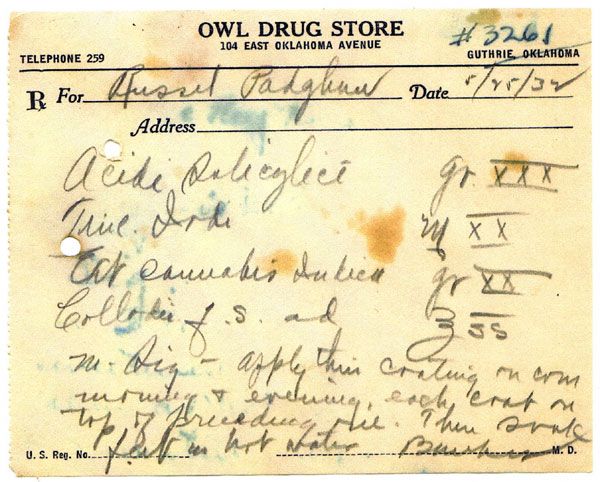 OWL DRUG STORE
104 EAST OKLAHOMA AVENUE
#3261
TELEPHONE 259
GUTHRIE, OKLAHOMA
℞ For Russel Date 5/25/32
Address
Acidi Salicylici gr XXX
Tinc. Iodi ♏ XX
Ext Cannabis Indica gr XX
Collodii q.s. ad ℥ ss
M. Sig - apply thin coating on corn
morning & evening, each coat on
top of preceding one. Then soak
feet in hot water
U. S. Reg. No. M. D.